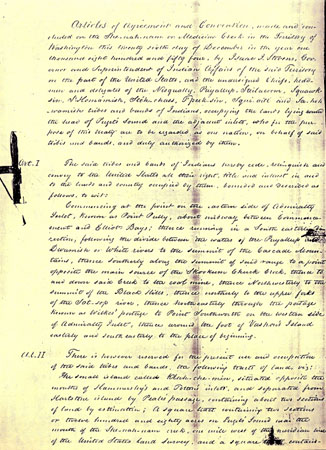 Articles of Agreement and Convention, made and con-
cluded on the She-nah-nam or Medicine Creek in the Territory of
Washington this twenty sixth day of December in the year one
thousand eight hundred and fifty four, by Isaac I. Stevens, Gov-
ernor and Superintendent of Indian Affairs of the said Territory
on the part of the United States, and the undersigned Chiefs, head-
men and delegates of the Nisqually, Puyallup, Steilacoom, Squawk-
sin, S'Homamish, Stehchass, T'Peek-sin, Squi-aitl and Sa-heh-
wamish tribes and bands of Indians, occupying the lands lying round
the head of Puget's Sound and the adjacent inlets, who for the pur-
pose of this treaty are to be regarded as one nation, on behalf of said
tribes and bands, and duly authorized by them.
Art. I The said tribes and bands of Indians hereby cede, relinquish and
convey to the United States all their right, title and interest in and
to the lands and country occupied by them, bounded and described as
follows, to wit:
Commencing at the point on the eastern side of Admiralty
Inlet, known as Point Pully, about midway between Commence-
ment and Elliott Bays; thence running in a South easterly di-
rection, following the divide between the waters of the Puyallup and
Dwamish or White rivers to the summit of the Cascade Moun-
tains, thence southerly along the summit of said range to a point
opposite the main source of the Skookum Chuck Creek, thence to
and down said Creek to the coal mine, thence Northwesterly to the
summit of the Black Hills, thence northerly to the upper forks
of the Sat-sop river, thence Northeasterly through the portage
known as Wilkes' portage to Point Southworth on the western side
of Admiralty Inlet, thence around the foot of Vashon's Island
easterly and south easterly to the place of beginning.
Art. II There is however reserved for the present use and occupation
of the said tribes and bands, the following tracts of land, viz:
The small island called Klah-che-min, situated opposite the
mouths of Hammersley's and Totten's inlets, and separated from
Hartstene island by Peale's passage, containing about two sections
of land by estimation; A square tract containing two sections
or twelve hundred and eighty acres on Puget's Sound near the
mouth of the She-nah-nam creek, one mile west of the meridian line
of the United States Land Survey, and a square tract contain-